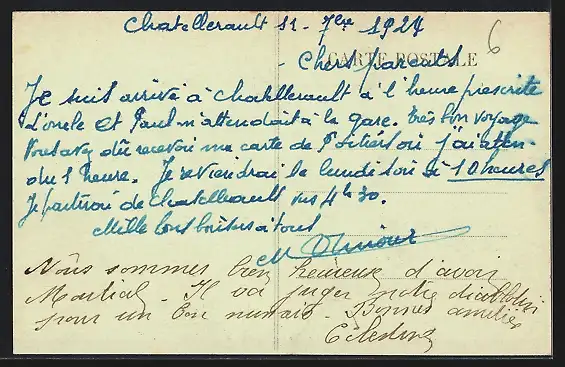 Chatellerault 11 - 7bre 1927
6
CARTE POSTALE
- Chers parents
Je suis arrivé à Chatellerault à l'heure prescrite
d'oncle et Paul m'attendait à la gare. Très bon voyage
Vous avez dû recevoir ma carte de Poitiers où j'ai atten-
du 1 heure. Je reviendrai le lundi soir à 10 heures
Je partirai de Chatellerault vers 4h 30.
Mille bons baisers à tous
M
Nous sommes bien heureux d'avoir
Martial. Il va juger notre diablotin
pour un bon numéro. Bonnes amitiés